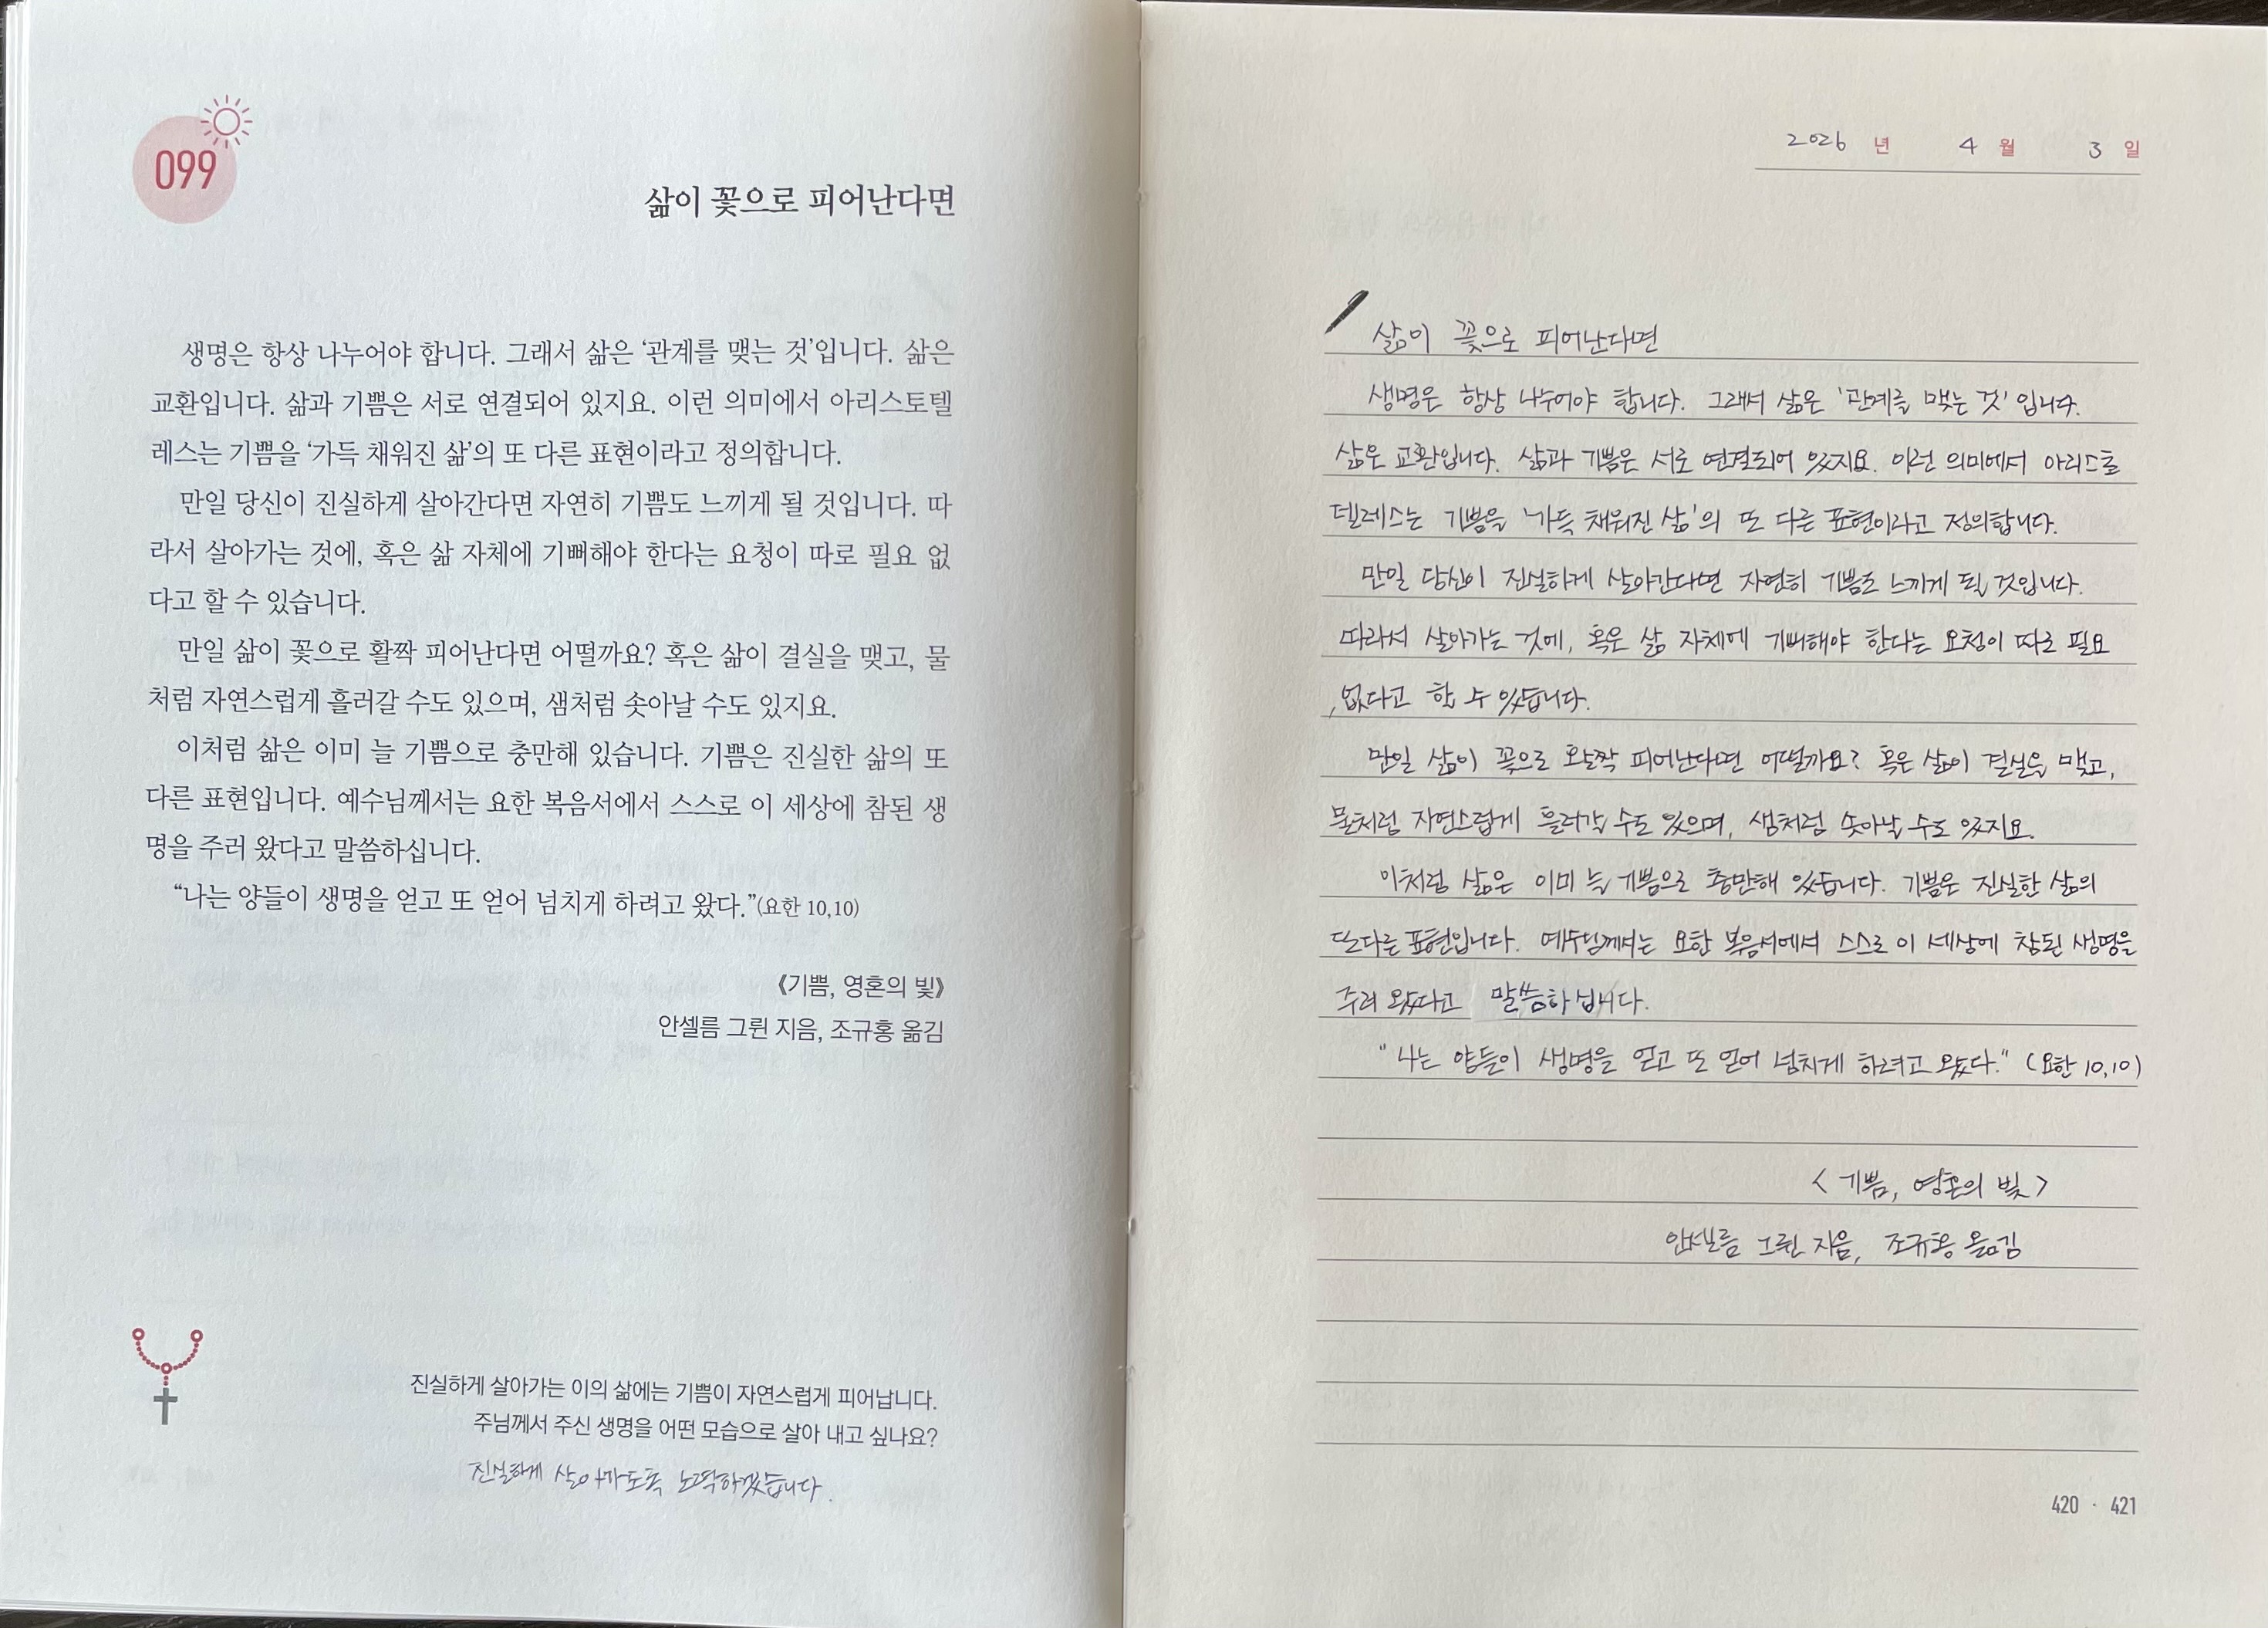 099
삶이 꽃으로 피어난다면
생명은 항상 나누어야 합니다. 그래서 삶은 ‘관계를 맺는 것’입니다. 삶은
교환입니다. 삶과 기쁨은 서로 연결되어 있지요. 이런 의미에서 아리스토텔
레스는 기쁨을 ‘가득 채워진 삶’의 또 다른 표현이라고 정의합니다.
만일 당신이 진실하게 살아간다면 자연히 기쁨도 느끼게 될 것입니다. 따
라서 살아가는 것에, 혹은 삶 자체에 기뻐해야 한다는 요청이 따로 필요 없
다고 할 수 있습니다.
만일 삶이 꽃으로 활짝 피어난다면 어떨까요? 혹은 삶이 결실을 맺고, 물
처럼 자연스럽게 흘러갈 수도 있으며, 샘처럼 솟아날 수도 있지요.
이처럼 삶은 이미 늘 기쁨으로 충만해 있습니다. 기쁨은 진실한 삶의 또
다른 표현입니다. 예수님께서는 요한 복음서에서 스스로 이 세상에 참된 생
명을 주러 왔다고 말씀하십니다.
“나는 양들이 생명을 얻고 또 얻어 넘치게 하려고 왔다.”(요한 10,10)
《기쁨, 영혼의 빛》
안셀름 그륀 지음, 조규홍 옮김
진실하게 살아가는 이의 삶에는 기쁨이 자연스럽게 피어납니다.
주님께서 주신 생명을 어떤 모습으로 살아 내고 싶나요?
진실하게 살아가도록 노력하겠습니다.
2026 년 4 월 3 일
삶이 꽃으로 피어난다면
생명은 항상 나누어야 합니다. 그래서 삶은 '관계를 맺는 것' 입니다.
삶은 교환입니다. 삶과 기쁨은 서로 연결되어 있지요. 이런 의미에서 아리스토
텔레스는 기쁨을 '가득 채워진 삶'의 또 다른 표현이라고 정의합니다.
만일 당신이 진실하게 살아간다면 자연히 기쁨도 느끼게 될 것입니다.
따라서 살아가는 것에, 혹은 삶 자체에 기뻐해야 한다는 요청이 따로 필요
없다고 할 수 있습니다.
만일 삶이 꽃으로 활짝 피어난다면 어떨까요? 혹은 삶이 결실을 맺고,
물처럼 자연스럽게 흘러갈 수도 있으며, 샘처럼 솟아날 수도 있지요.
이처럼 삶은 이미 늘 기쁨으로 충만해 있습니다. 기쁨은 진실한 삶의
또다른 표현입니다. 예수님께서는 요한 복음서에서 스스로 이 세상에 참된 생명을
주러 왔다고 말씀하십니다.
"나는 양들이 생명을 얻고 또 얻어 넘치게 하려고 왔다." (요한 10,10)
< 기쁨, 영혼의 빛 >
안셀름 그륀 지음, 조규홍 옮김
420 · 421